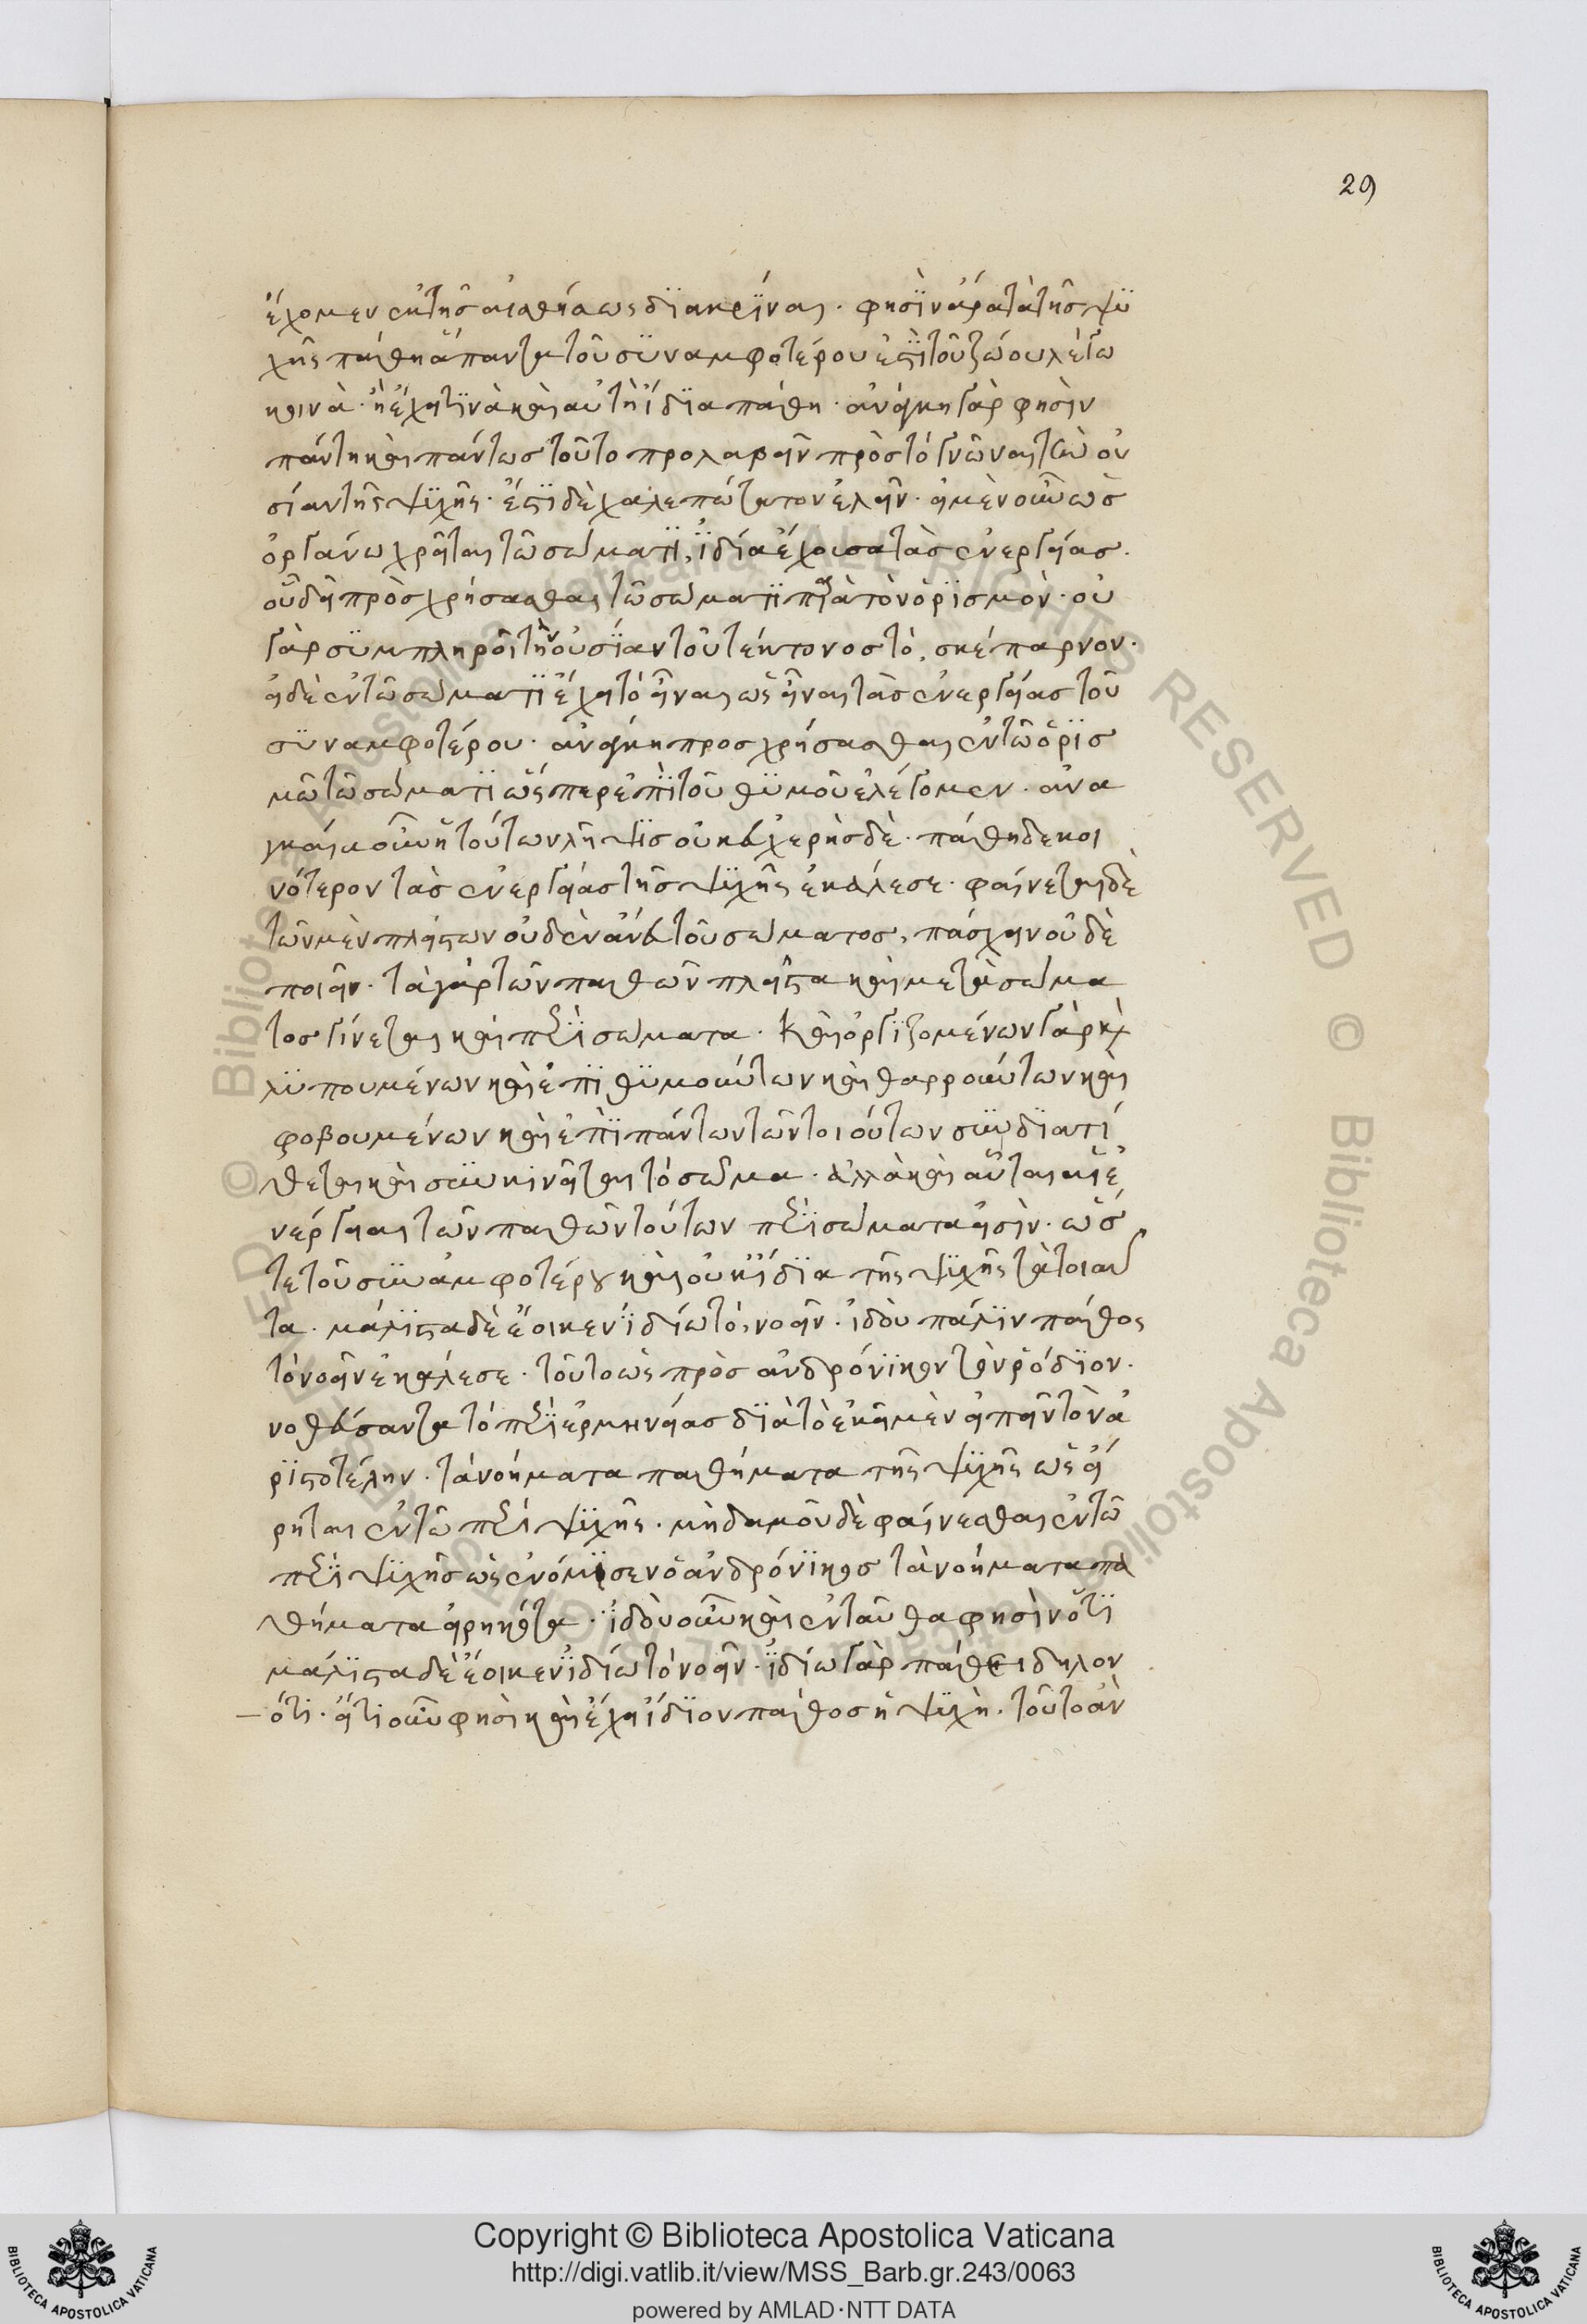 29
ἔχομεν ἐκ τῆς αἰσθήσεως διακρῖναι. φησὶν ἆρα τὰ τῆς ψυ
χῆς πάθη ἅπαντα τοῦ συναμφοτέρου ἐστὶ τοῦ ζώου λέγω
κοινὰ. ἢ ἔχει τινὰ καὶ αὐτὴ ἴδια πάθη. ἀνάγκη γὰρ φησὶν
πάντη καὶ πάντως τοῦτο προλαβεῖν πρὸς τὸ γνῶναι τὴν οὐ
σίαν τῆς ψυχῆς. ἔστι δὲ χαλεπώτατον ἑλεῖν. εἰ μὲν οὖν ὡς
ὀργάνω χρῆται τῶ σώματι, ἰδία ἔχουσα τὰς ἐνεργείας.
οὐ δεῖ προσχρήσασθαι τῶ σώματι παρὰ τὸν ὁρισμὸν. οὐ
γὰρ συμπληροῖ τὴν οὐσίαν τοῦ τέκτονος τὸ, σκέπαρνον.
εἰ δὲ ἐν τῶ σώματι ἔχει τὸ εἶναι ὡς εἶναι τὰς ἐνεργείας τοῦ
συναμφοτέρου. ἀνάγκη προσχρήσασθαι ἐν τῶ ὁρισ
μῶ τῶ σώματι ὥσπερ ἐπὶ τοῦ θυμοῦ ἐλέγομεν. ἀνα
γκαία οὖν ἡ τούτων λῆψις οὐκ εὐχερὴς δὲ. πάθη δὲ κοι
νότερον τὰς ἐνεργείας τῆς ψυχῆς ἐκάλεσε. φαίνεται δὲ
τῶν μὲν πλείστων οὐδὲν ἄνευ τοῦ σώματος, πάσχειν οὐδὲ
ποιεῖν. τὰ γὰρ τῶν παθῶν πλεῖστα καὶ μετὰ σώμα
τος γίνεται καὶ περὶ σώματα. καὶ ὀργιζομένων γὰρ καὶ
λυπουμένων καὶ ἐπιθυμούντων καὶ θαρρούντων καὶ
φοβουμένων καὶ ἐπὶ πάντων τῶν τοιούτων συνδιατί
θεται καὶ συνκινεῖται τὸ σῶμα. ἀλλὰ καὶ αὗται αἱ ἐ
νέργειαι τῶν παθῶν τούτων περὶ σώματα εἰσὶν. ὥσ
τε τοῦ συναμφοτέρου καὶ οὐκ ἴδια τῆς ψυχῆς τὰ τοιαῦ
τα. μάλιστα δὲ ἔοικεν ἰδίω τὸ, νοεῖν. ἰδοὺ πάλιν πάθος
τὸ νοεῖν ἐκάλεσε. τοῦτο ὡς πρὸς ἀνδρόνικον τὸν ῥόδιον.
νοθεύσαντα τὸ περὶ ἑρμηνείας διὰ τὸ ἐκεῖ μὲν εἰπεῖν τὸν ἀ
ριστοτέλην. τὰ νοήματα παθήματα τῆς ψυχῆς ὡς εἴ
ρηται ἐν τῶ περὶ ψυχῆς. μηδαμοῦ δὲ φαίνεσθαι ἐν τῶ
περὶ ψυχῆς ὡς ἐνόμισεν ὁ ἀνδρόνικος τὰ νοήματα πα
θήματα εἰρηκότα. ἰδοὺ οὖν καὶ ἐνταῦθα φησὶν ὅτι
μάλιστα δὲ ἔοικεν ἰδίω τὸ νοεῖν. ἰδίω γὰρ πάθει δηλον
ότι. εἴ τι οὖν φησὶ καὶ ἔχει ἴδιον πάθος ἡ ψυχὴ. τοῦτο ἂν
© Biblioteca Apostolica Vaticana ALL RIGHTS RESERVED © Biblioteca Apostolica Vaticana ALL RIGHTS RESERVED
Copyright © Biblioteca Apostolica Vaticana
http://digi.vatlib.it/view/MSS_Barb.gr.243/0063
powered by AMLAD·NTT DATA
BIBLIOTECA APOSTOLICA VATICANA
BIBLIOTECA APOSTOLICA VATICANA